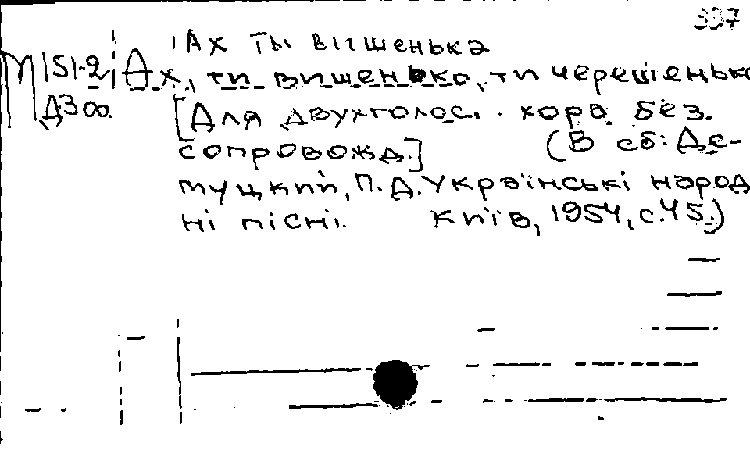 337
Ах ти вишенька
М151.2 Ах, ти вишенько, ти черешенько
Д300. [Для двухголос. хора без
сопровожд.] (В сб: Де-
муцкий, П.Д. Українські народ
ні пісні. Київ, 1954, с.45.)